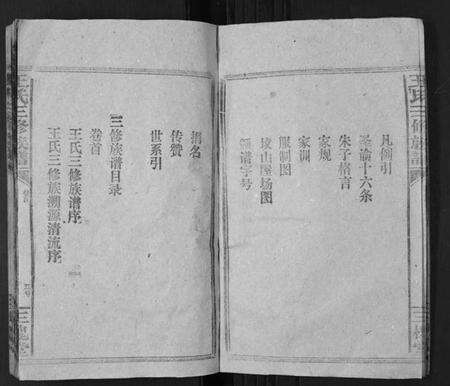 凡例引
圣谕十六条
朱子格言
家规
家训
服制图
坟山屋场图
领谱字号
捐名
传赞
世系引
三修族谱目录
卷首
王氏三修族谱序
王氏三修族溯源清流序
王氏三修族谱
三槐堂